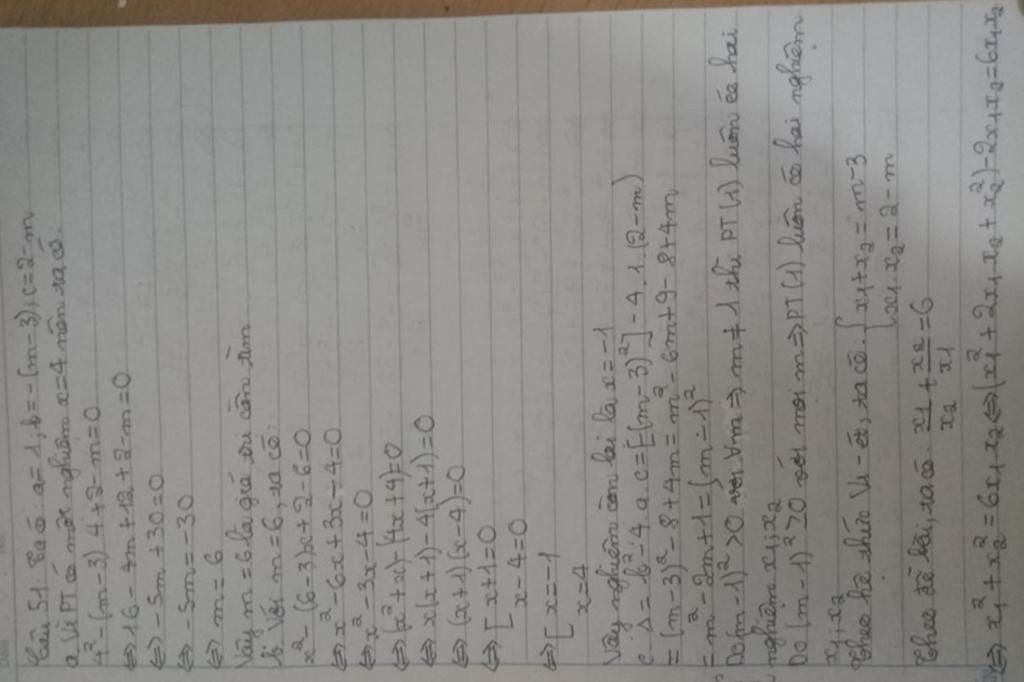 Câu 51 Ta có: a=1; b=-(m-3); c=2-m
a. Vì PT có một nghiệm x=4 nên ta có:
4²-(m-3) 4+2-m=0
⇔16-4m+12+2-m=0
⇔-5m+30=0
⇔-5m=-30
⇔m=6
Vậy m=6 là giá trị cần tìm
b. Với m=6, ta có:
x²-(6-3)x+2-6=0
⇔x²-6x+3x-4=0
⇔x²-3x-4=0
⇔(x²+x)-(4x+4)=0
⇔x(x+1)-4(x+1)=0
⇔(x+1)(x-4)=0
⇔[x+1=0
x-4=0
⇔[x=-1
x=4
Vậy nghiệm còn lại là x=-1
c. Δ=b²-4 a c=[-(m-3)²]-4.1.(2-m)
=(m-3)²-8+4m=m²-6m+9-8+4m
=m²-2m+1=(m-1)²
Do(m-1)²>0 với ∀m⇒m≠1 thì PT(1) luôn có hai
nghiệm x₁;x₂
Do (m-1)²≥0 với mọi m⇒PT(1) luôn có hai nghiệm
x₁;x₂
Theo hệ thức Vi-ét, ta có: {x₁+x₂=m-3
x₁.x₂=2-m
Theo đề bài, ta có: x₁/x₂+x₂/x₁=6
⇔x₁²+x₂²=6x₁x₂⇔(x₁²+2x₁x₂+x₂²)-2x₁x₂=6x₁x₂